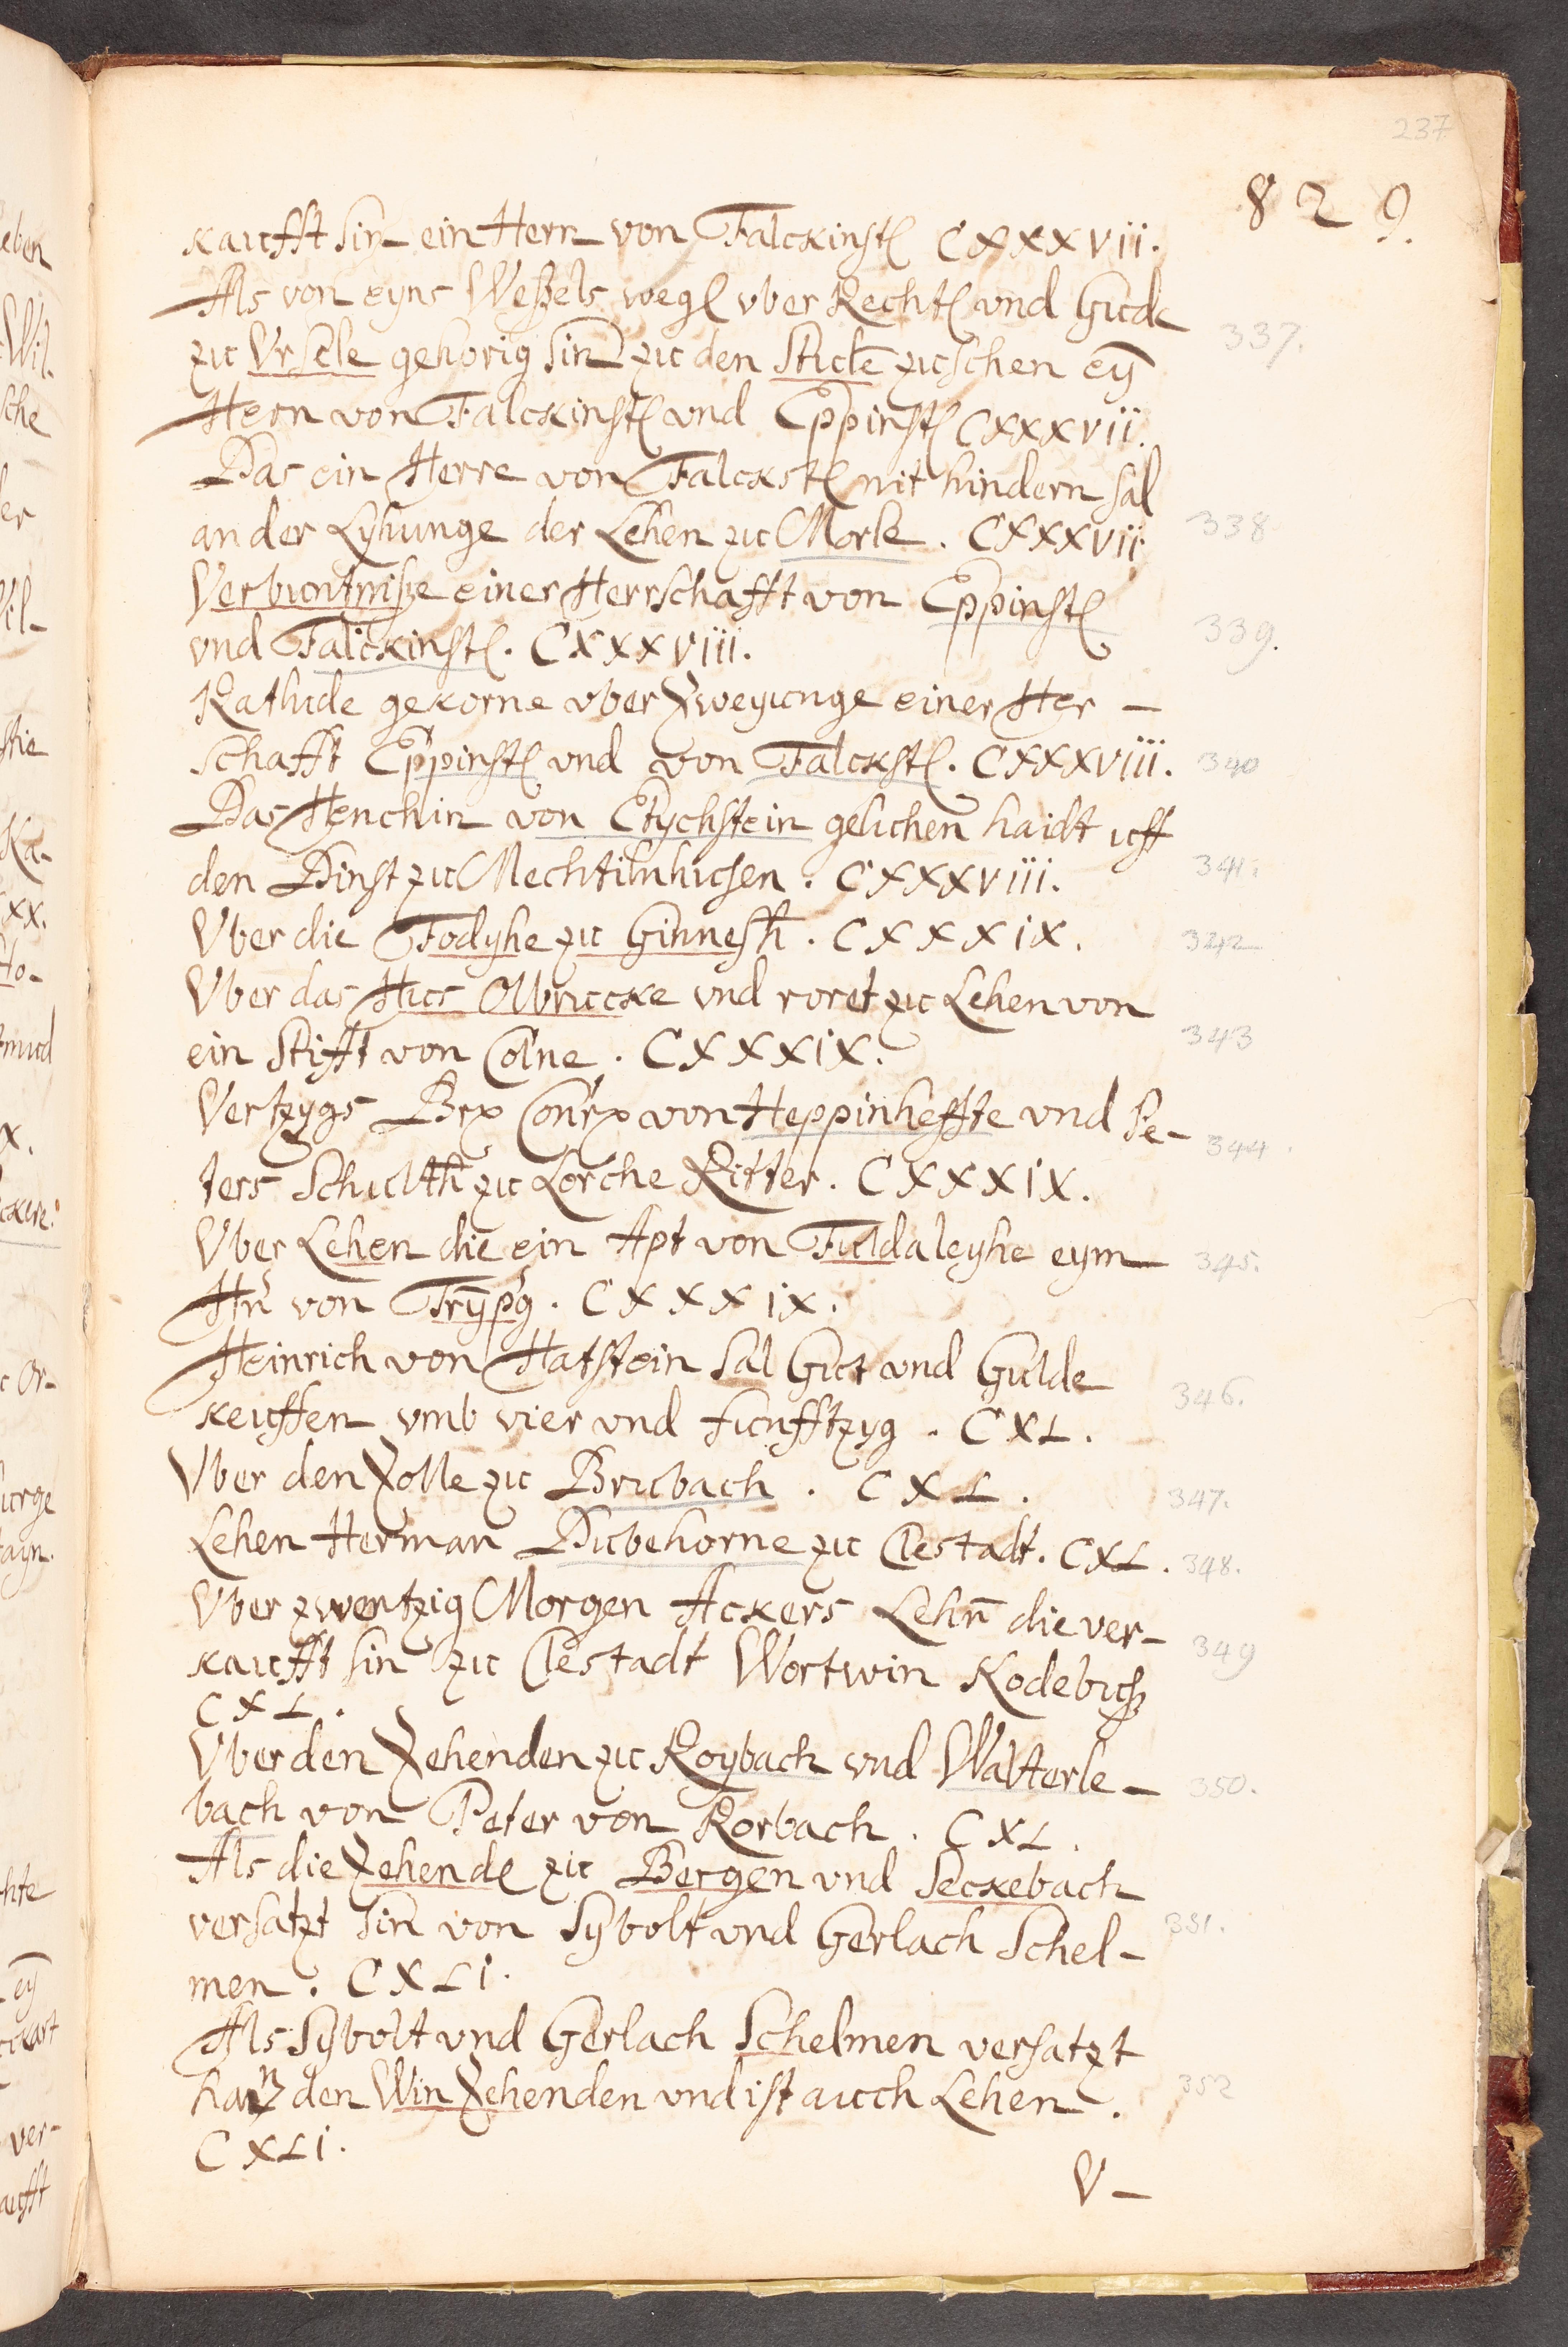 237
829.
kaufft sin ein Hern von Falckinst(e) CXXXVII.
Als von eyns Weßels weg(e) vber Recht(e) vnd Gude
337.
zu Vrsele gehorig sin zu den Stucke zuschen ey̅
Hern von Falckinst(e) vnd Eppinst(e) CXXXVII.
Das ein Herre von Falckst(e) nit hindern sal
an der Lyhunge der Lehen zu Morle. CXXXVII
338
Verbuntniße einer Herrschafft von Eppinst(e)
vnd Falckinst(e). CXXXVIII.
339.
Rathude gekorne vber Zweyunge einer Her-
schafft Eppinst(e) vnd von Falckst(e). CXXXVIII.
340
Das Henchin von Etychstein geluhen haidt uff
den Dinst zu Mechtilnhusen. CXXXVIII.
341.
Vber die Fodyhe zu Ginnesh̅. CXXXIX.
342
Vber das Hus Olbrucke vnd roret zu Lehen von
ein Stifft von Colne. CXXXIX.
343
Vertzygs Conrx von Heppinheffte vnd Pe-
344.
ters Schulth̅ zu Lorche Ritter. CXXXIX.
Vber Lehen die ein Apt von Fulda leyhe eym
345.
Hn̅ von Try̅pg. CXXXIX.
Heinrich von Hatstein sal Gut vnd Gulde
346.
keuffen vmb vier vnd funfftzyg. CXL.
Vber den Zolle zu Brubach. CXL.
347.
Lehen Herman Dubehorne zu Clestadt. CXL.
348.
Vber zwentzig Morgen Ackers Lehn̅ die ver-
kaufft sin zu Clestadt Wortwin Kodebuß
349
CXL.
Vber den Zehenden zu Roybach vnd Walterle-
350.
bach von Peter von Rorbach. CXL.
Als die Zehend(e) zu Bergen vnd Seckebach
versatzt sin von Sybolt vnd Gerlach Schel-
351.
men. CXLI.
Als Sybolt vnd Gerlach Schelmen versatzt
den Win Zehenden vnd ist auch Lehen.
352
CXLI.
V-